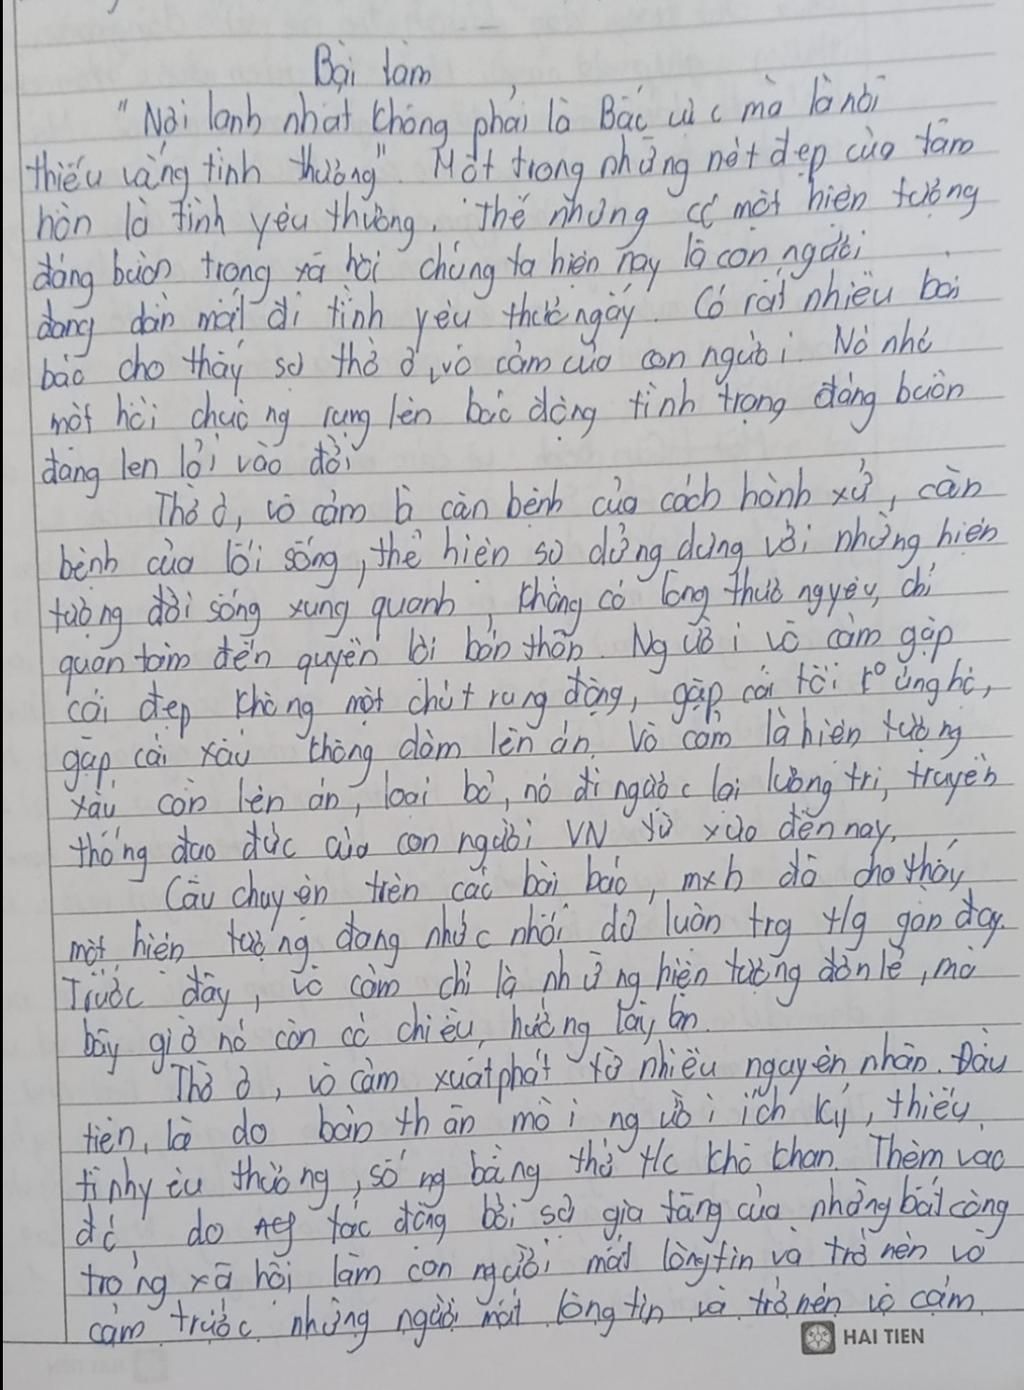 Bài làm
"Nơi lạnh nhất không phải là Bắc cực mà là nơi
thiếu vắng tình thương". Một trong những nét đẹp của tâm
hồn là tình yêu thương. Thế nhưng có một hiện tượng
đáng buồn trong xã hội chúng ta hiện nay là con người
đang dần mất đi tình yêu thương ấy. Có rất nhiều bài
báo cho thấy sự thờ ơ, vô cảm của con người. Nó như
một hồi chuông rung lên báo động tình trạng đáng buồn
đang len lỏi vào đời
Thờ ơ, vô cảm là căn bệnh của cách hành xử, căn
bệnh của lối sống, thể hiện sự dửng dưng với những hiện
tượng đời sống xung quanh, không có lòng thương yêu, chỉ
quan tâm đến quyền lợi bản thân. Người vô cảm gặp
cái đẹp không một chút rung động, gặp cái tốt ko ủng hộ,
gặp cái xấu không dám lên án. Vô cảm là hiện tượng
xấu cần lên án, loại bỏ, nó đi ngược lại lương tri, truyền
thống đạo đức của con người VN từ xưa đến nay.
Câu chuyện trên các bài báo, mxh đã cho thấy
một hiện tượng đang nhức nhối dư luận trg t/g gần đây.
Trước đây, vô cảm chỉ là những hiện tượng đơn lẻ, mà
bây giờ nó còn có chiều hướng lây lan.
Thờ ơ, vô cảm xuất phát từ nhiều nguyên nhân. Đầu
tiên, là do bản thân mỗi người ích kỷ, thiếu
tình yêu thương, sống bằng thứ t/c khô khan. Thêm vào
đó, do tác động bởi sự gia tăng của những bất công
trong xã hội làm con người mất lòng tin và trở nên vô
cảm trước những người mất lòng tin và trở nên vô cảm
HAI TIEN